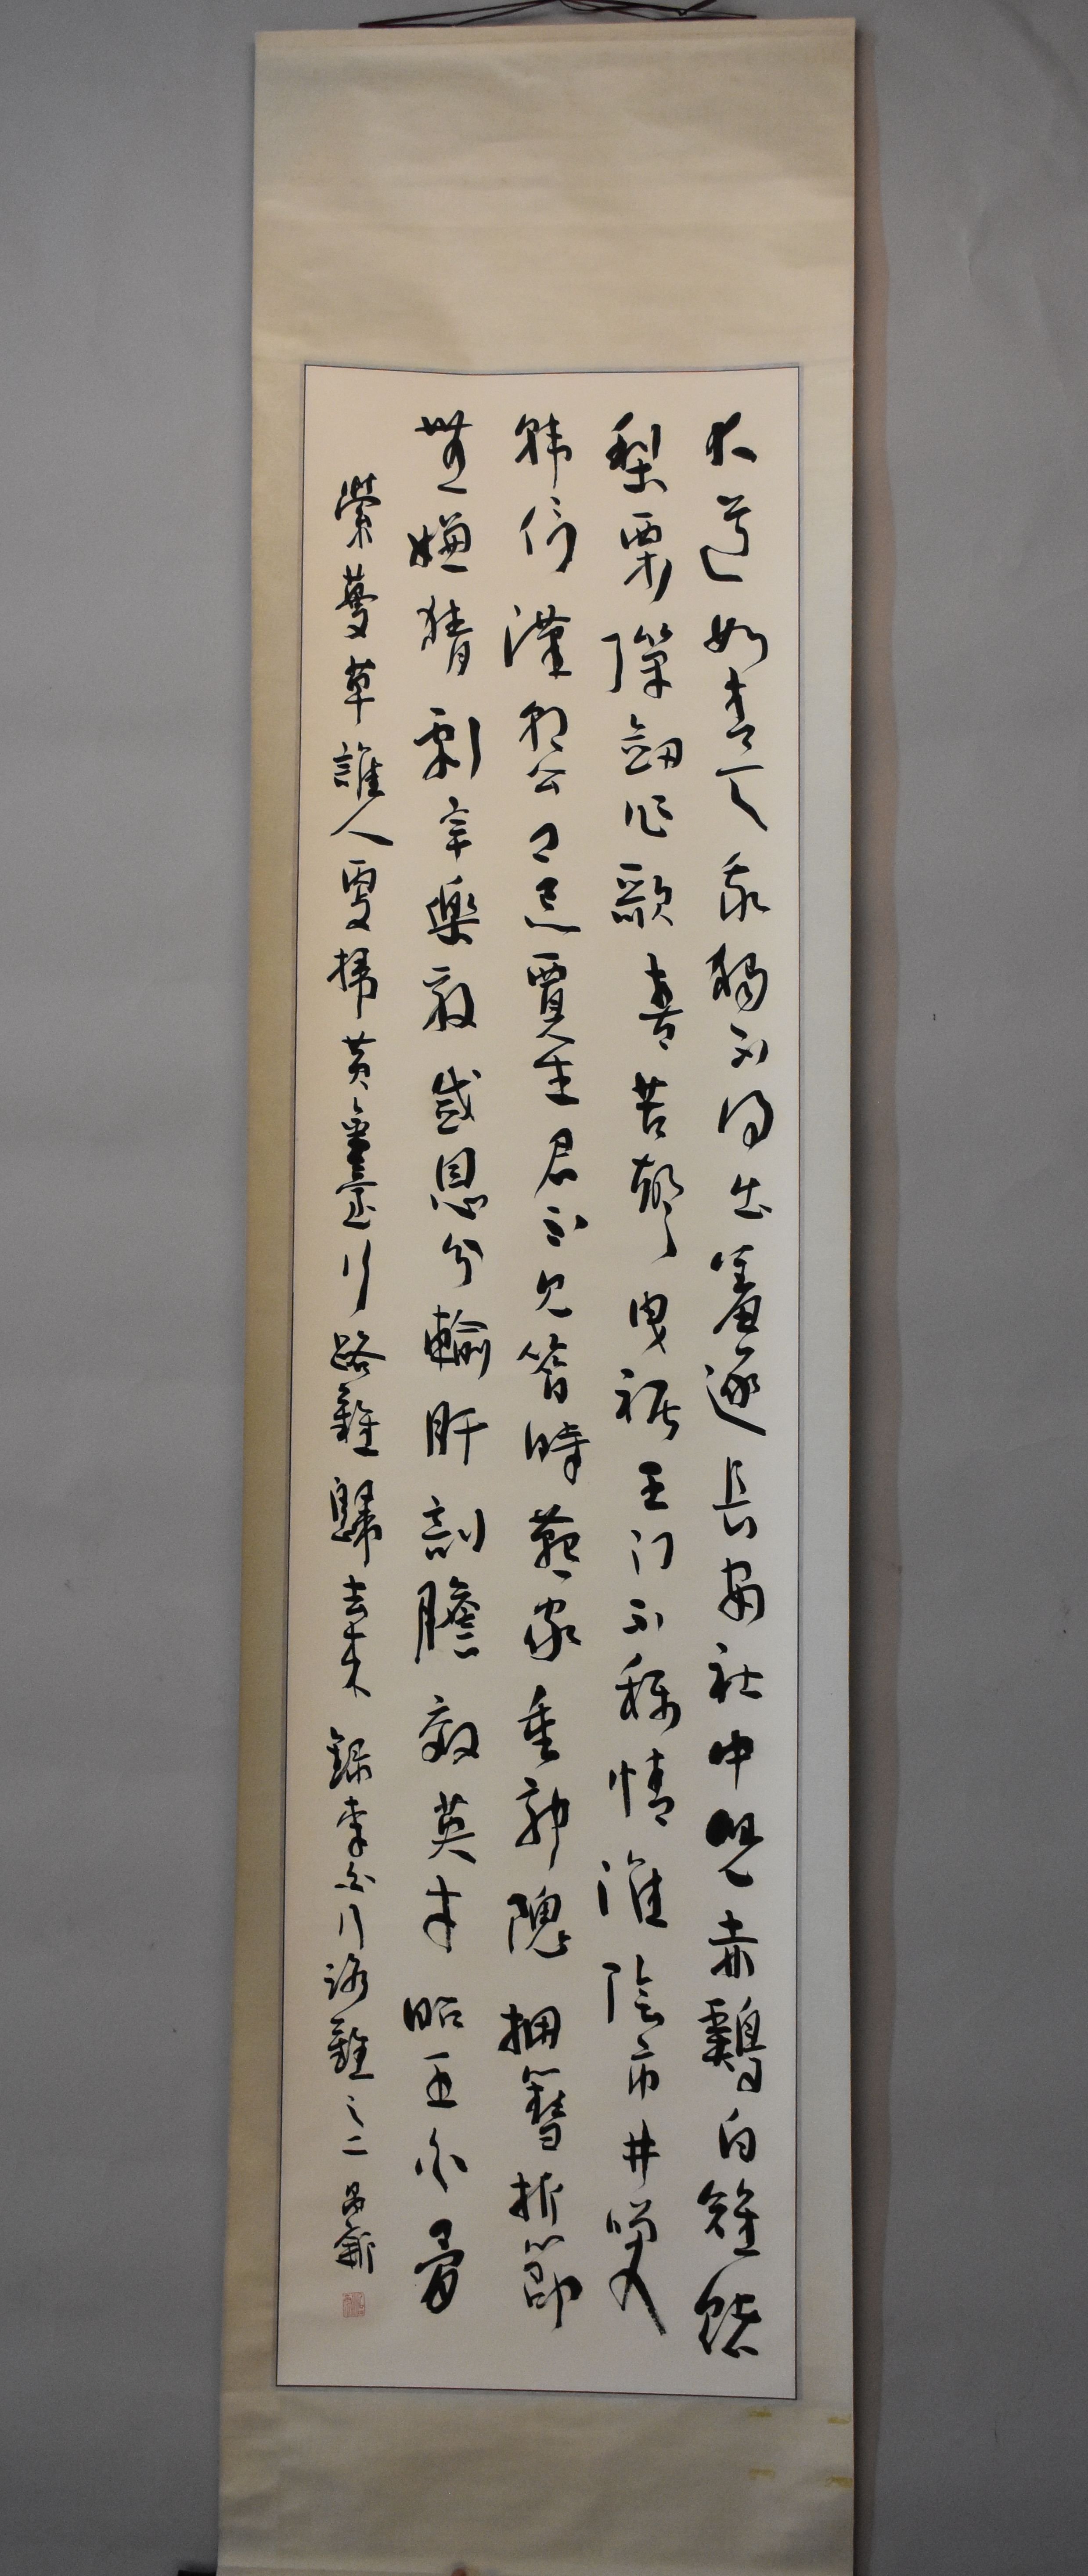 大道如青天我獨不得出羞逐長安社中兒赤鷄白雉賭
梨栗彈劍作歌奏苦聲曳裾王門不稱情淮陰市井笑
韓信漢朝公卿忌賈生君不見昔時燕家重郭隗擁篲折節
無嫌猜劇辛樂毅感恩分輸肝剖膽效英才昭王白骨
縈蔓草誰人更掃黃金臺行路難歸去來 錄李白行路難之二